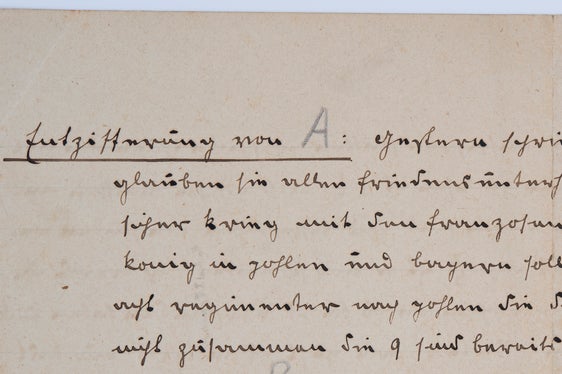 Entzifferung von A: Gestern schri
glauben sie allen friedensunterh
sicher krieg mit den franzosen
konig in pohlen und bayern soll
acht regimenter nach pohlen die d
nicht zusammen die 9 sind bereits